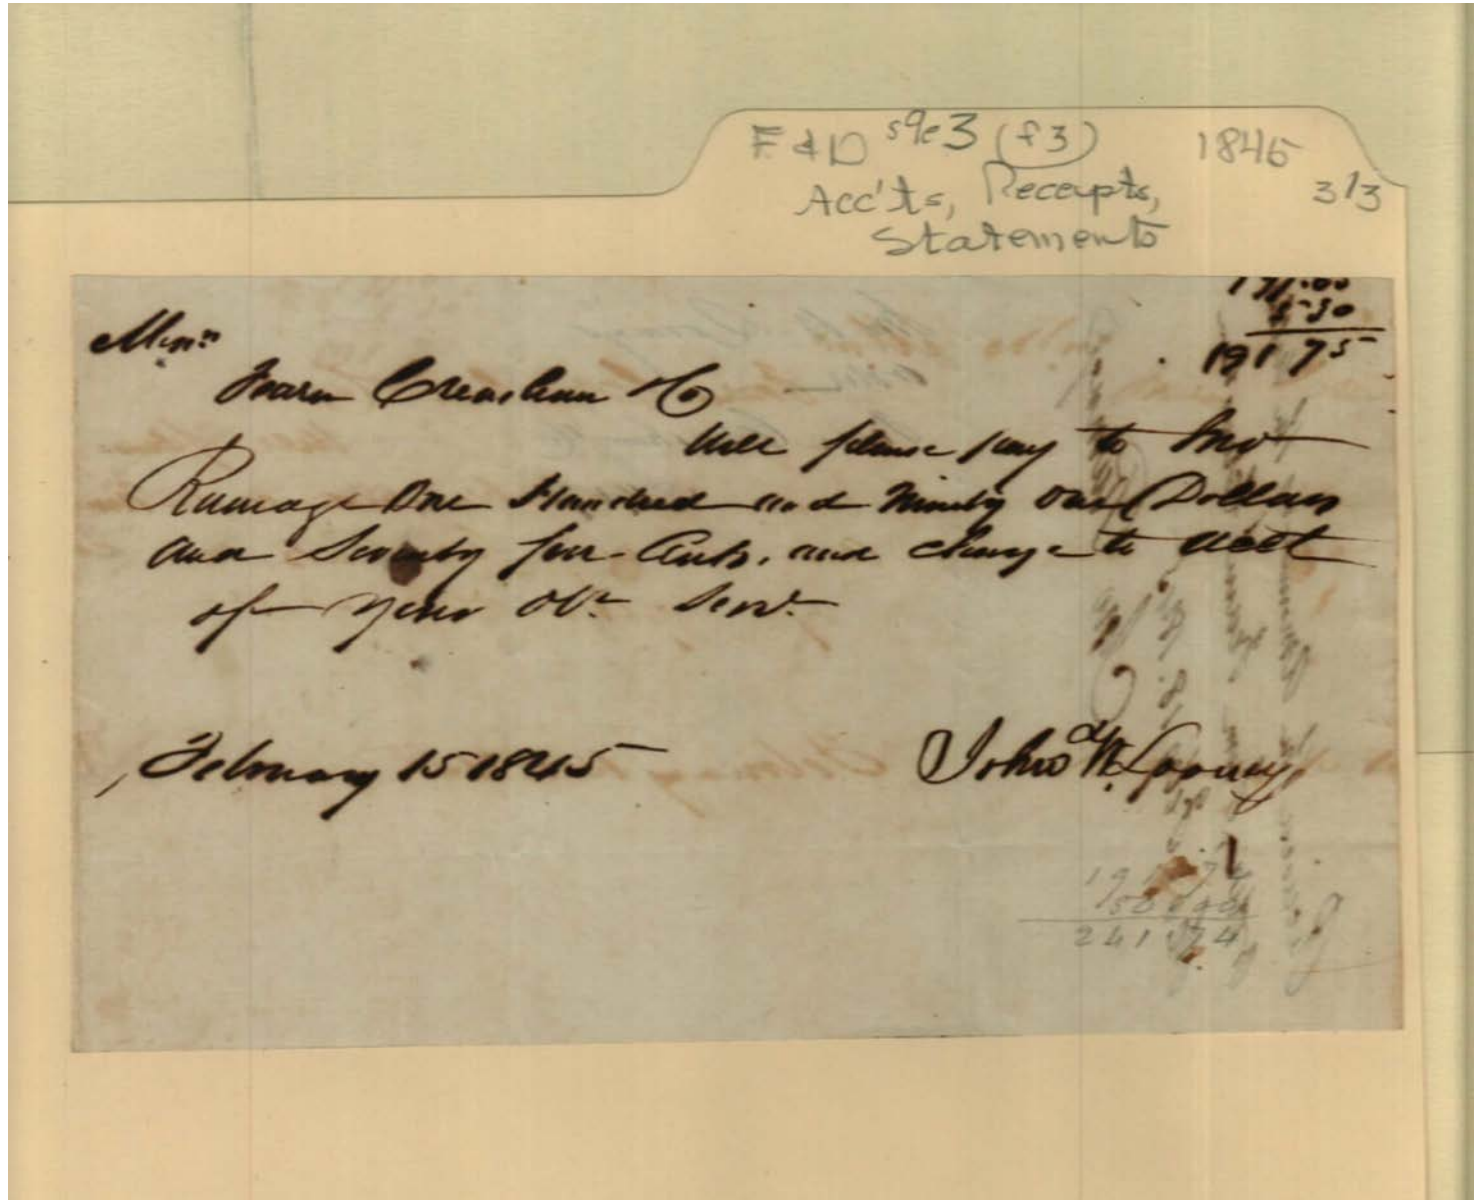 F & D s9e3 (f3) 1845
3/3
Acc'ts, Receipts,
Statements
5-30
191 75
Messrs
Fearn Crenshaw & Co
Will please pay to Jno
Ramage One Hundred and Ninety one Dollars
and Seventy four Cents, and charge to acct
of Your Obt Servt
February 15 1845
John W. Looney
50 00
241 74